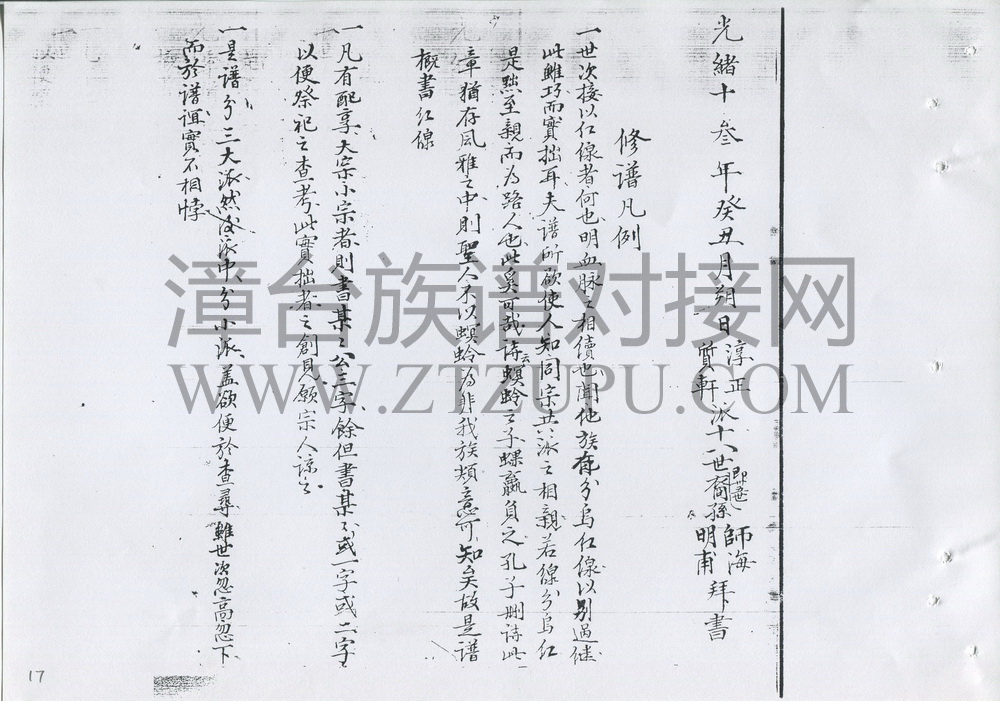 光緒十叁年癸丑月朔日淳正質軒派十八世裔孫師海明甫拜書
修譜凡例
一世次接以紅線者何也明血脉之相續也聞他族有分烏紅線以別過继
此雖巧而實拙耳夫譜所欲使人知同宗共派之相親若線分烏紅
是點至親而為路人也此奚可哉詩云螟蛉之子蜾蠃負之孔子删詩此
章猶存風雅之中則聖人不以螟蛉為非我族類意可知矣故是譜
概書紅線
一凡有配享大宗小宗者則書某々公三字餘但書某々或一字或二字
以便祭祀之查考此實拙者之創見願宗人諒之
一是譜分三大派然後派中分小派盖欲便於查尋雖世次忽高忽下
而於譜誼實不相悖
漳台族谱对接网
WWW.ZTZUPU.COM
17